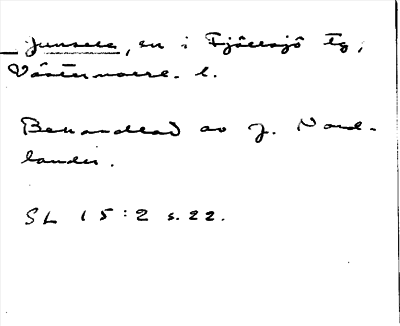 Junsele, en i Fjällsjö tg,
Västernorrl. l.
Behandlad av J. Nord-
lander.
SL 15:2 s. 22.